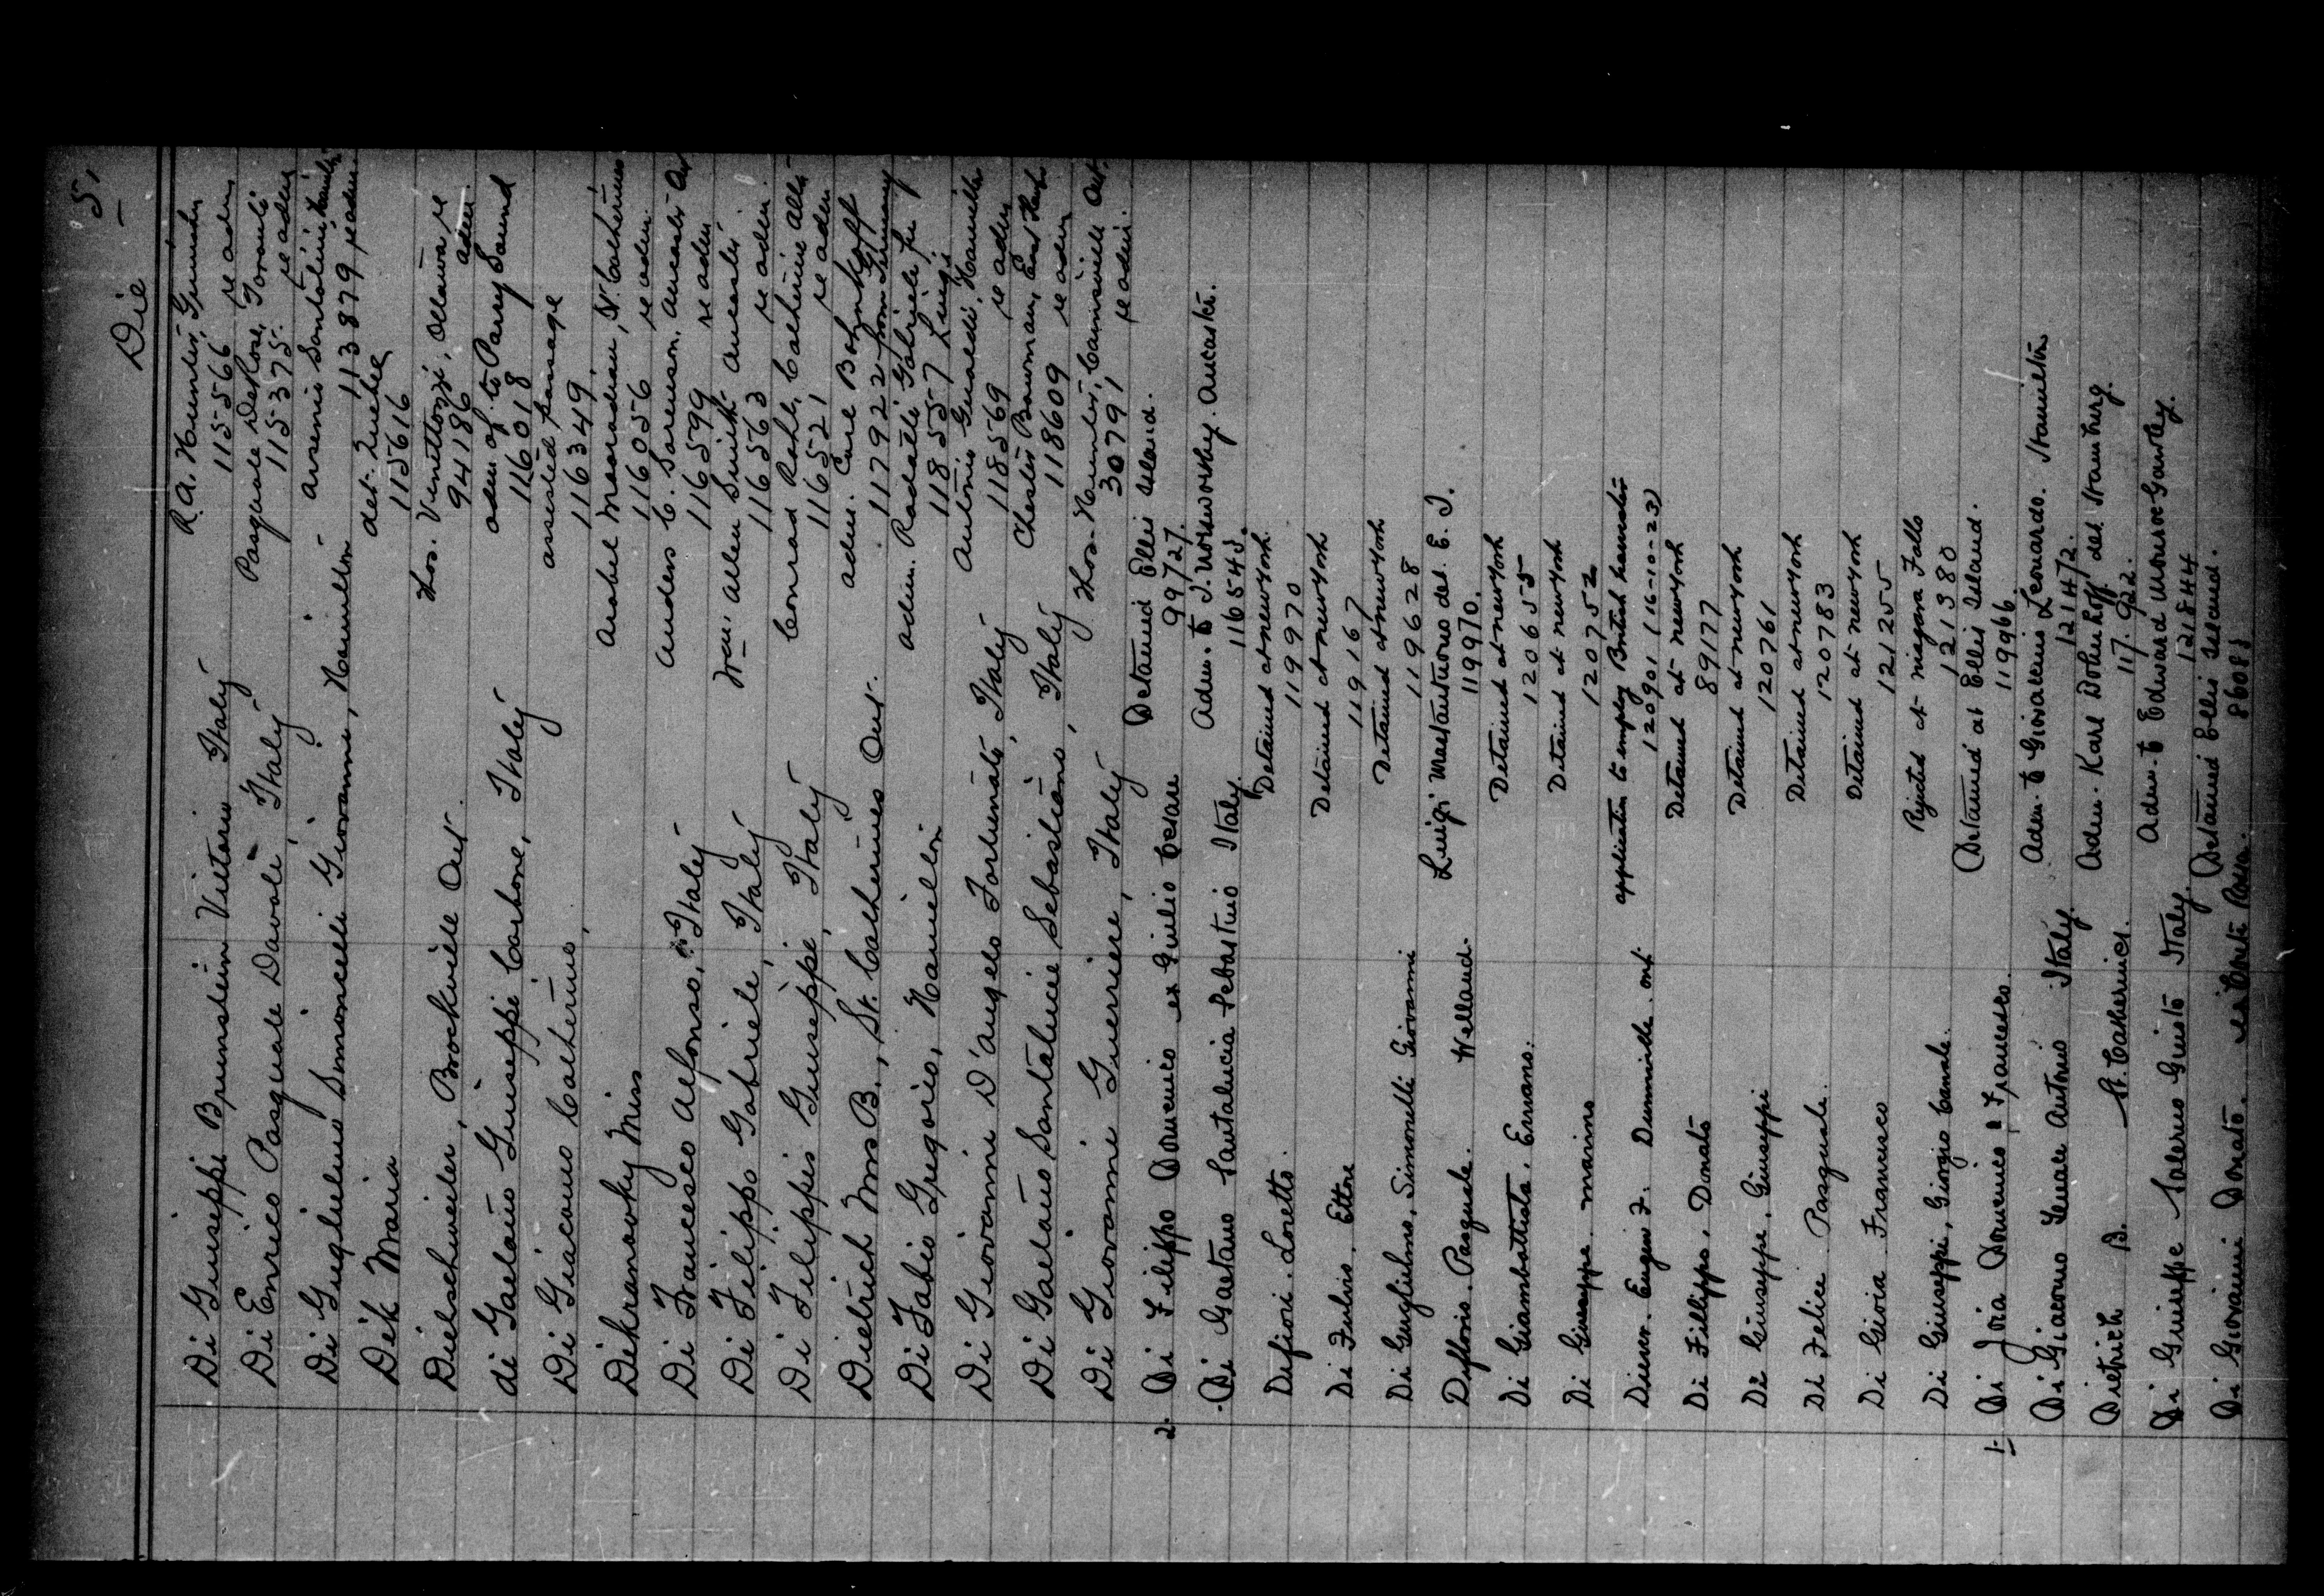 5,
Die
Di Giuseppi Brunstein Vittorio Italy R. A. Hunter,
115566 re adm
Di Enrico Pasquale Davale, Italy Pasquale DeRose, Toronto
115375. re adm
Di Guglielmo Simoncelli Giovanni, Hamilton - Arsenio Santolini
113879 re adm
Dik Maria det. Quebec
115616
Dielschweiler, Brockville Ont. Thos. Venittozzi, Ottawa re
941186 adm.
di Gaetano Giuseppi Carbone, Italy adm of. to Parry Sound
116018
Di Giacomo Catherine, assisted passage
116349.
Dikranovky Miss
116056 re adm.
Di Francesco Alfonso, Italy Anders C. Sorenson, Ancaster Ont
116599 re adm
Di Filippo Gabriele, Italy Wm. Allen Smith Ancaster
116563 re adm.
Di Filippis Giuseppe, Italy Conrad
116521 re adm
Dietrich Mrs B., St. Catherines Ont. adm.
117922 from Germany
Di Fabio Gregorio, Hamilton adm. Radatti Gabriele fu
118557 Luigi
Di Giovanni D'Angelo Fortunato, Italy Antonio Gualdi, Hamilton
118569 re adm
Di Gaetano Santalucie Sebastiano, Italy Chester Bowman,
118609 re adm
Di Giovanni Guerriere, Italy Thos. Hunter, Cainsville Ont.
30791 re adm.
2. Di Filippo Domenico ex Giulio Cesare Detained Ellis Island.
99727.
Di Gaetano Santalucia Sebastino Italy. Adm. to J. Ancaster.
116545.
Difiori. Loretto. Detained at New York
119970
Di Fulvio. Ettore Detained at New York
119167
Di Guglielmo, Simonelli Giovanni Detained at New York
119628
Difloris. Pasquale. Welland. Luigi Mastantuono del. E. I.
119970.
Di Giambattista. Ersano. Detained at New York
120655
Di Giuseppe. Marino Detained at New York
120752
Diener. Eugen F. Dunnville. Ont. application to employ British
120901 (16-10-23)
Di Fillippo. Donato Detained at New York
89177
Di Giuseppe. Giuseppi Detained at New York
120761
Di Felice. Pasquale. Detained at New York
120783
Di Gioia Francesco Detained at New York
121255
Di Giuseppi, Giorgio Canale. Rejected at Niagara Falls
121380
1. Di Joia Domenico & Francesco. Detained at Ellis Island.
119966.
Di Giacomo Antonio Italy. Adm. to Giovannino Leonardo. Hamilton
121472.
Dietrich B. St. Catherines. Adm. Karl Dohnhoff det Hamburg.
117.922.
Di Guiseppe Salerno Guisto Italy. Adm. to Edward Monroe Gawley.
121844
Di Giovanni Donato. Detained Ellis Island.
86081